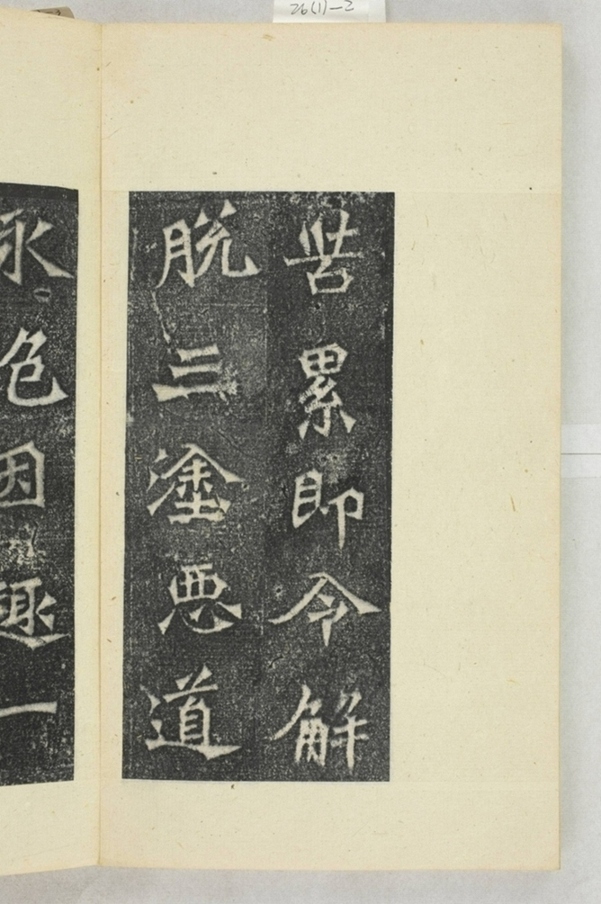 26(1)-2
苦累即令解
脫三塗惡道
永絕因趣一